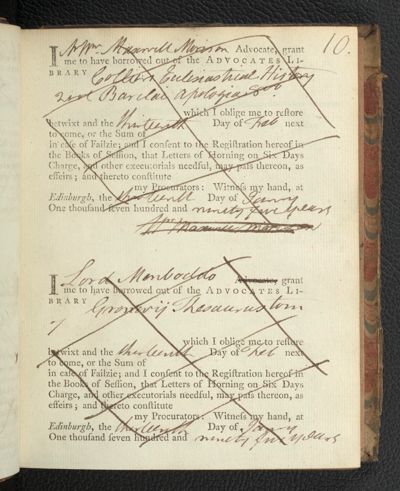 10.
I Wm Maxwell Morison Advocate, grant
me to have borrowed out of the ADVOCATES LI-
BRARY Colliers Eclesiastical History
2 vol Barclai Apologia 8o
which I oblige me to reſtore
betwixt and the thirteenth Day of Feb next
to come, or the Sum of
in caſe of Failzie; and I conſent to the Regiſtration hereof in
the Books of Seſſion, that Letters of Horning on Six Days
Charge, and other executorials needful, may paſs thereon, as
effeirs; and thereto conſtitute
my Procurators: Witneſs my hand, at
Edinburgh, the thirteenth Day of Janry
One thouſand ſeven hundred and ninety five years
Wm Maxwell Morison
I Lord Monboddo Advocate, grant
me to have borrowed out of the ADVOCATES LI-
BRARY Gronovij Thesaurus tom
7
which I oblige me to reſtore
betwixt and the thirteenth Day of Feb next
to come, or the Sum of
in caſe of Failzie; and I conſent to the Regiſtration hereof in
the Books of Seſſion, that Letters of Horning on Six Days
Charge, and other executorials needful, may paſs thereon, as
effeirs; and thereto conſtitute
my Procurators: Witneſs my hand, at
Edinburgh, the thirteenth Day of Janry
One thouſand ſeven hundred and ninety five years